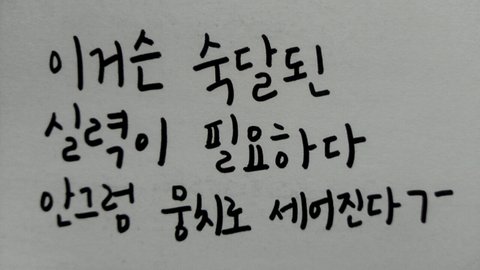 이거슨 숙달된
실력이 필요하다
안그럼 뭉치로 세어진다ㄱ-